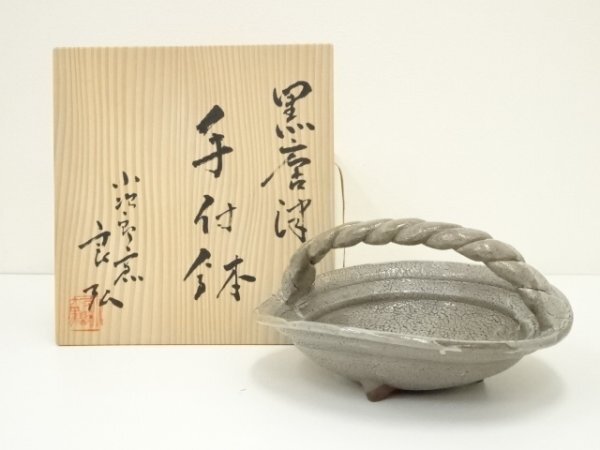 黒唐津
手付鉢
小次郎窯
良弘